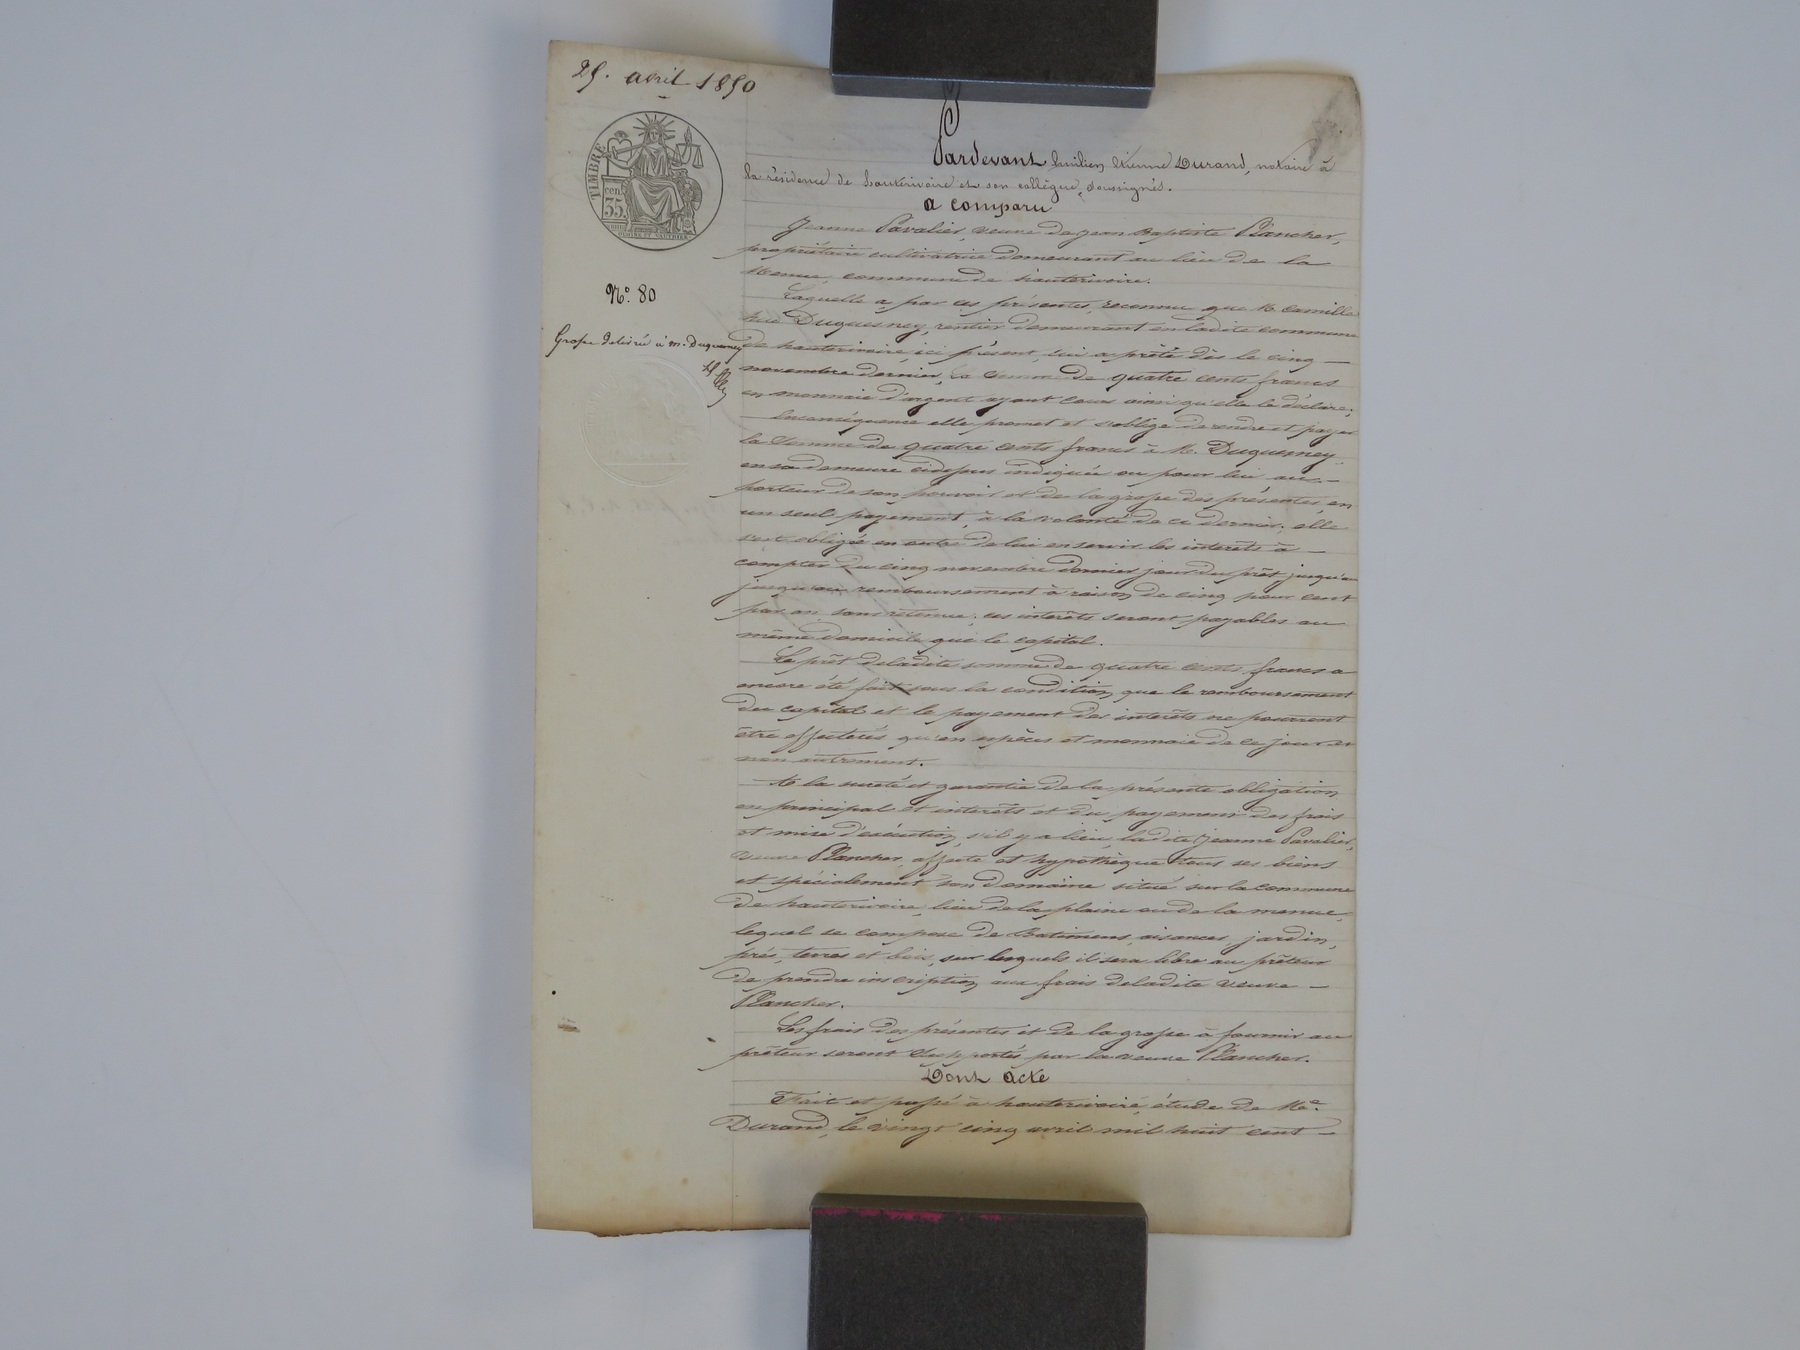 25. avril 1850
TIMBRE
cen
35.
N.° 80
Grosse délivrée à m. Duquesney
Pardevant Etienne Durand, notaire à
la résidence de hauterivoire et son collègue, soussignés.
a comparu
Jeanne Pavalier, veuve de Jean Baptiste Plancher,
propriétaire cultivatrice demeurant au lieu de la
menue, commune de hauterivoire.
Laquelle a, par ces présentes, reconnu que M. Camille
Duquesney, rentier demeurant en ladite commune
de hauterivoire, ici présent, lui a prêté dès le cinq —
novembre dernier, la somme de quatre cents francs
en monnaie d'argent ayant cours ainsi qu'elle le déclare;
Enconséquence elle promet et s'oblige de rendre et payer
la somme de quatre cents francs à M. Duquesney,
en sa demeure cidessus indiquée ou pour lui au —
porteur de son pouvoir et de la grosse des présentes, en
un seul payement, à la volonté de ce dernier; elle
s'est obligée en outre de lui en servir les intérêts à —
compter du cinq novembre dernier jour du prêt jusqu'au
jusqu'au remboursement à raison de cinq pour cent
par an, sans retenue; ces intérêts seront payables au
même domicile que le capital.
Le prêt deladite somme de quatre cents francs a
encore été fait sous la condition, que le remboursement
du capital et le payement des intérêts ne pourront
être effectués qu'en espèces et monnaie de ce jour et
non autrement.
A la sureté et garantie de la présente obligation
en principal et intérêts et du payement des frais
et mise d'exécution, s'il y a lieu, ladite Jeanne Pavalier,
veuve Plancher, affecte et hypothèque tous ses biens
et spécialement son domaine situé sur la commune
de hauterivoire, lieu de la plaine ou de la menue,
lequel se compose de Batimens, aisances, jardin,
prés, terres et bois, sur lesquels il sera libre au prêteur
de prendre inscription aux frais deladite veuve —
Plancher.
Les frais des présentes et de la grosse à fournir au
prêteur seront supportés par la veuve Plancher.
Dont acte
Fait et passé à hauterivoire, étude de Me.
Durand, le vingt cinq avril mil huit cent —